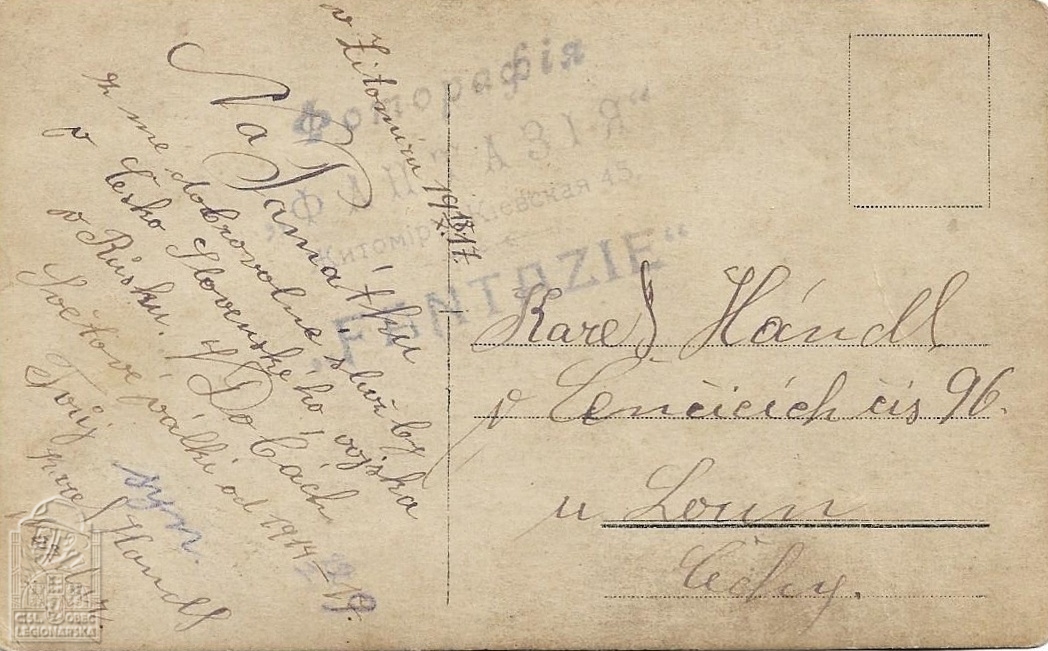 v Žitomíru 19 18/X. 17.
Na Památku
z mé dobrovolné služby
v Česko Slovenského vojska
v Rusku. V Dobách
Světové války od 1914
Tvůj
syn.
Karel Handl
Фотографія
„ФАНТАЗІЯ“
Житоміръ, Кіевская 45.
„FENTAZIE“
Karel Hándl
v Lenčicích čís 96.
u Loun
Čechy.
ČSL. OBEC
LEGIONÁŘSKÁ